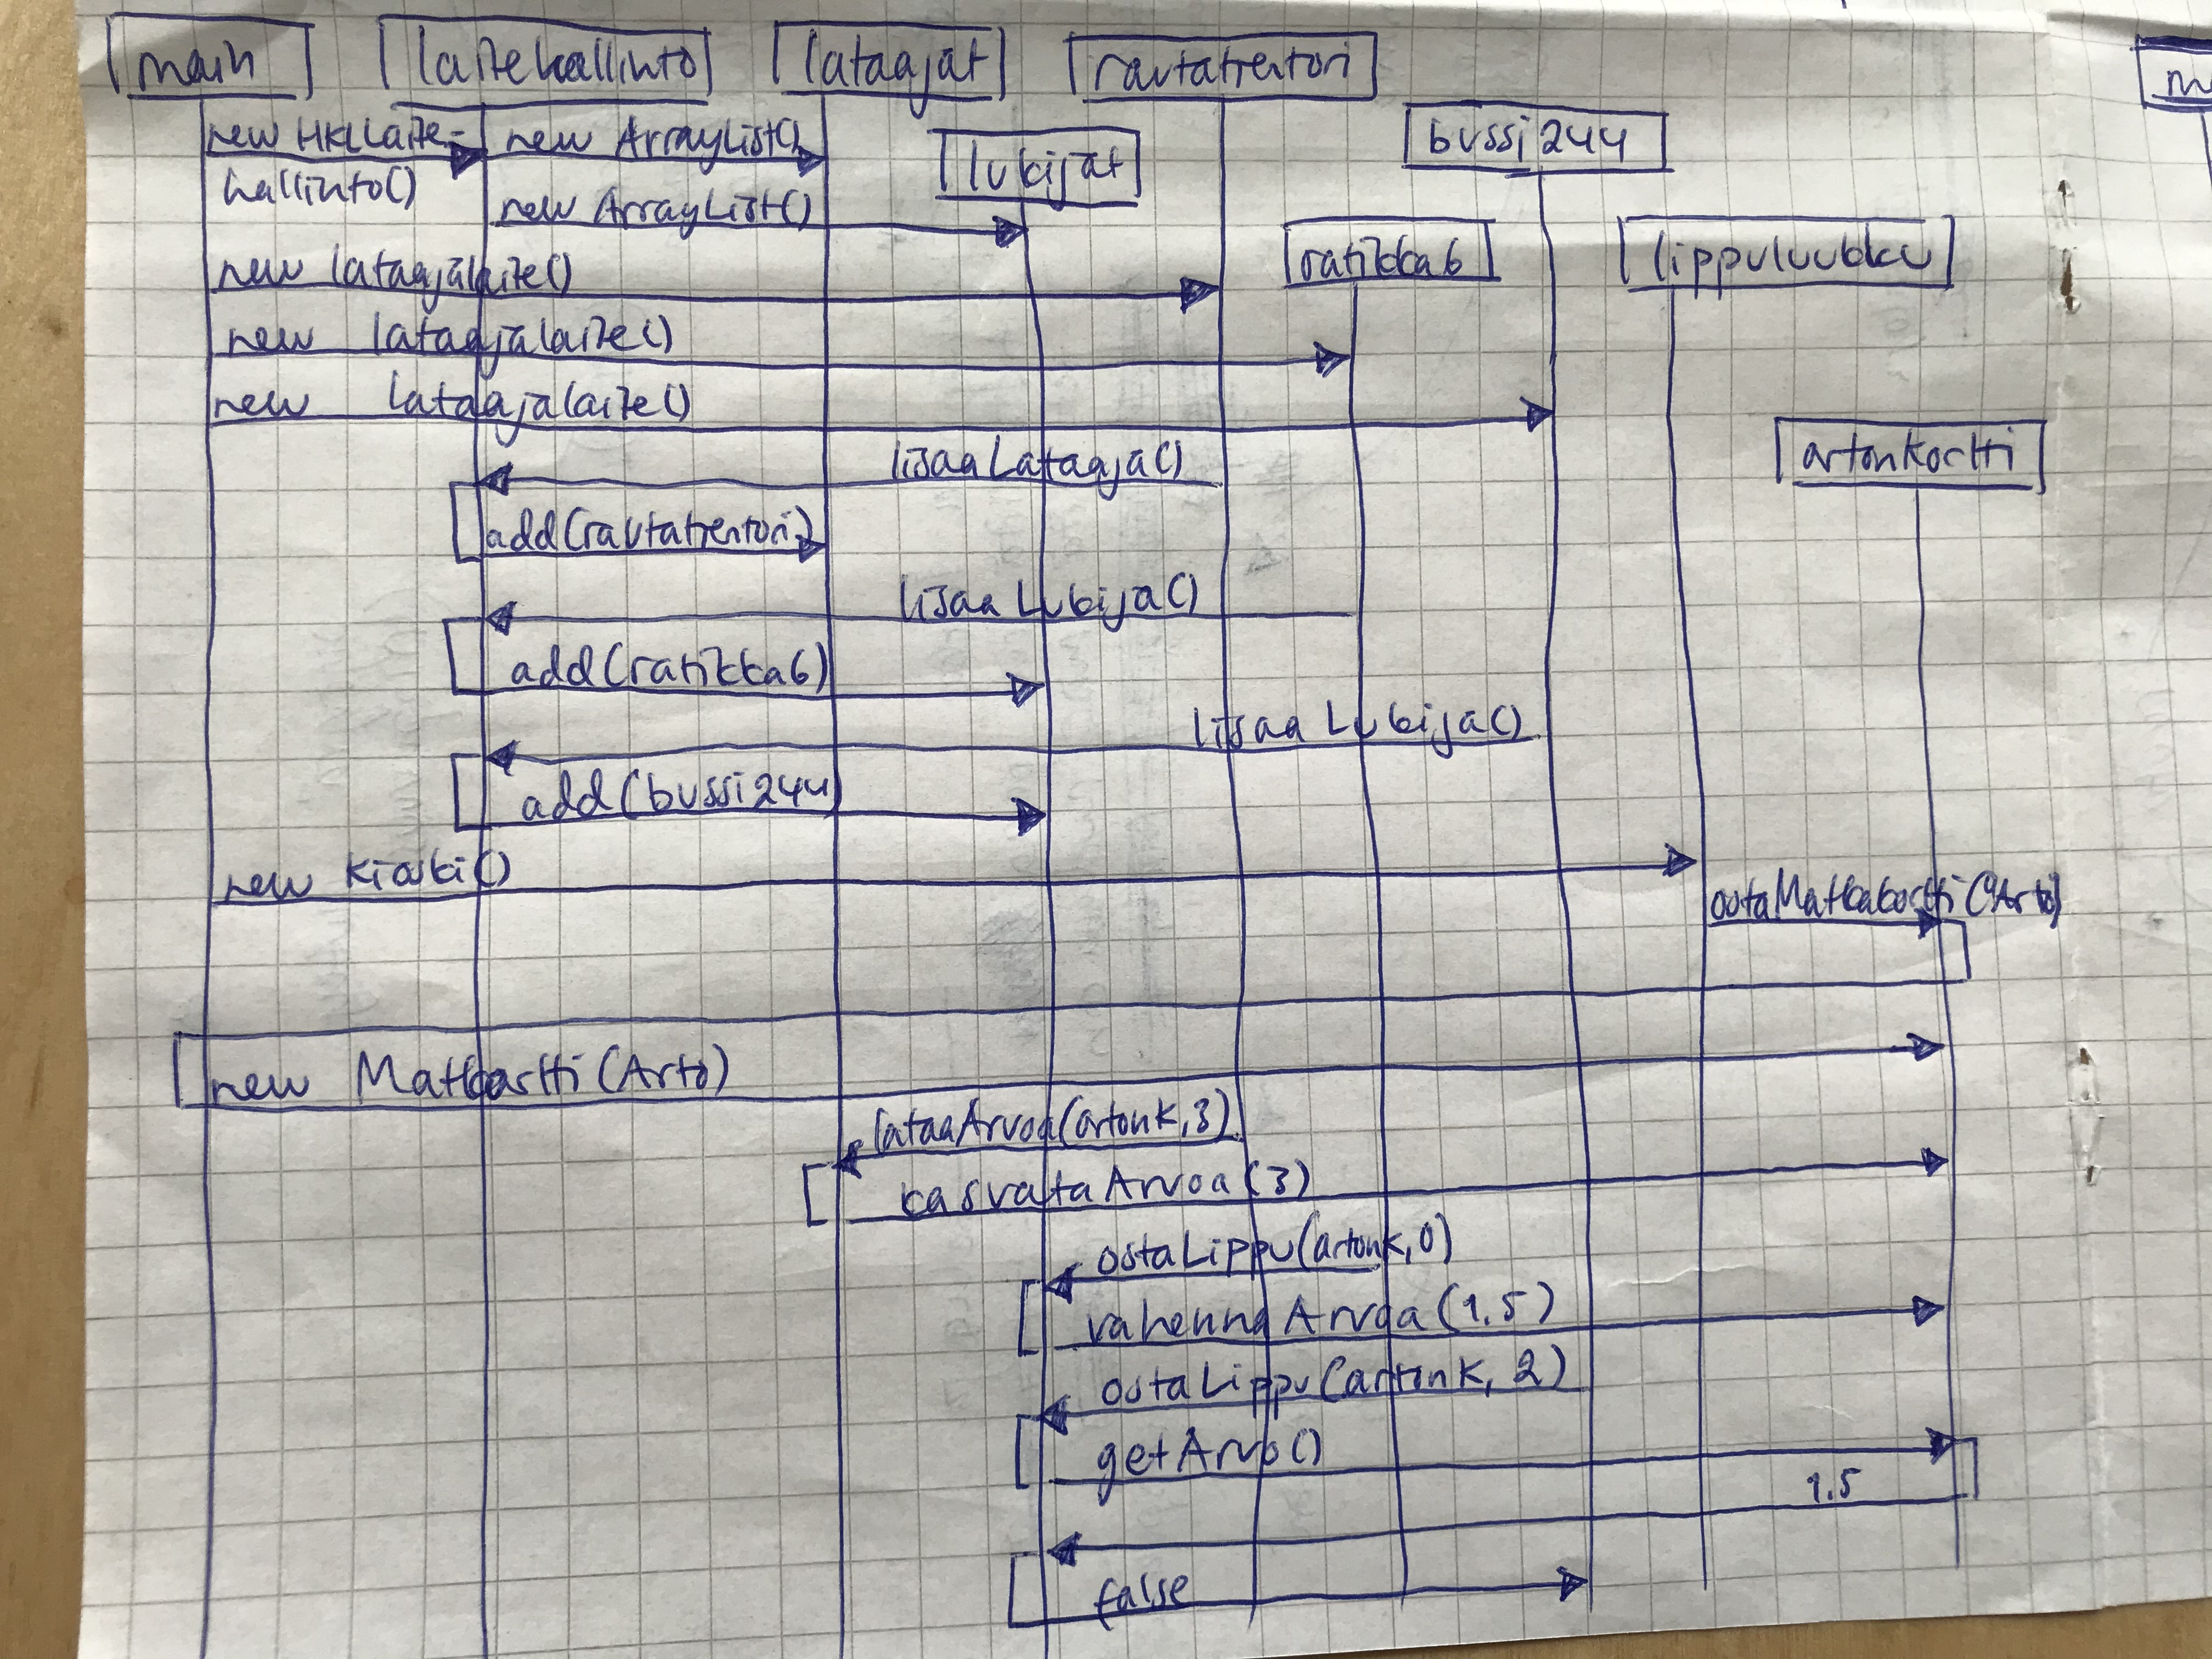 main
laitehallinto
lataajat
lukijat
rautatientori
ratikka6
bussi244
lippuluukku
artonkortti
new HKLLaite-
hallinto()
new ArrayList()
new ArrayList()
new lataajalaite()
new lataajalaite()
new lataajalaite()
lisaaLataaja()
add(rautatientori)
lisaa Lukija()
add(ratikka6)
lisaa Lukija()
add(bussi244)
new Kioski()
ostaMatkakortti(Arto)
new Matkakortti (Arto)
lataaArvoa(artonk,3)
kasvataArvoa(3)
ostaLippu(artonk,0)
vahennaArvoa(1,5)
ostaLippu(artonk, 2)
getArvo()
1.5
false